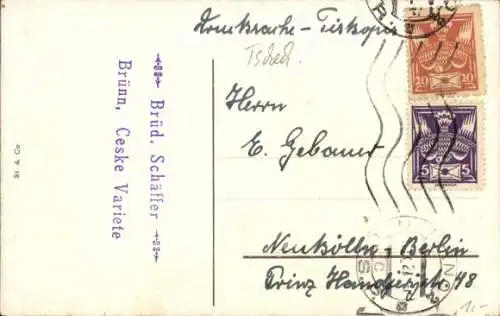 Drucksache - Tiskopis
Tschech.
Brüd. Schäffer
Brünn, Ceske Variete
St. & Co.
Herrn
E. Gebauer
Neukölln - Berlin
Prinz Handjerystr. 48
20 20
5 5
1.-